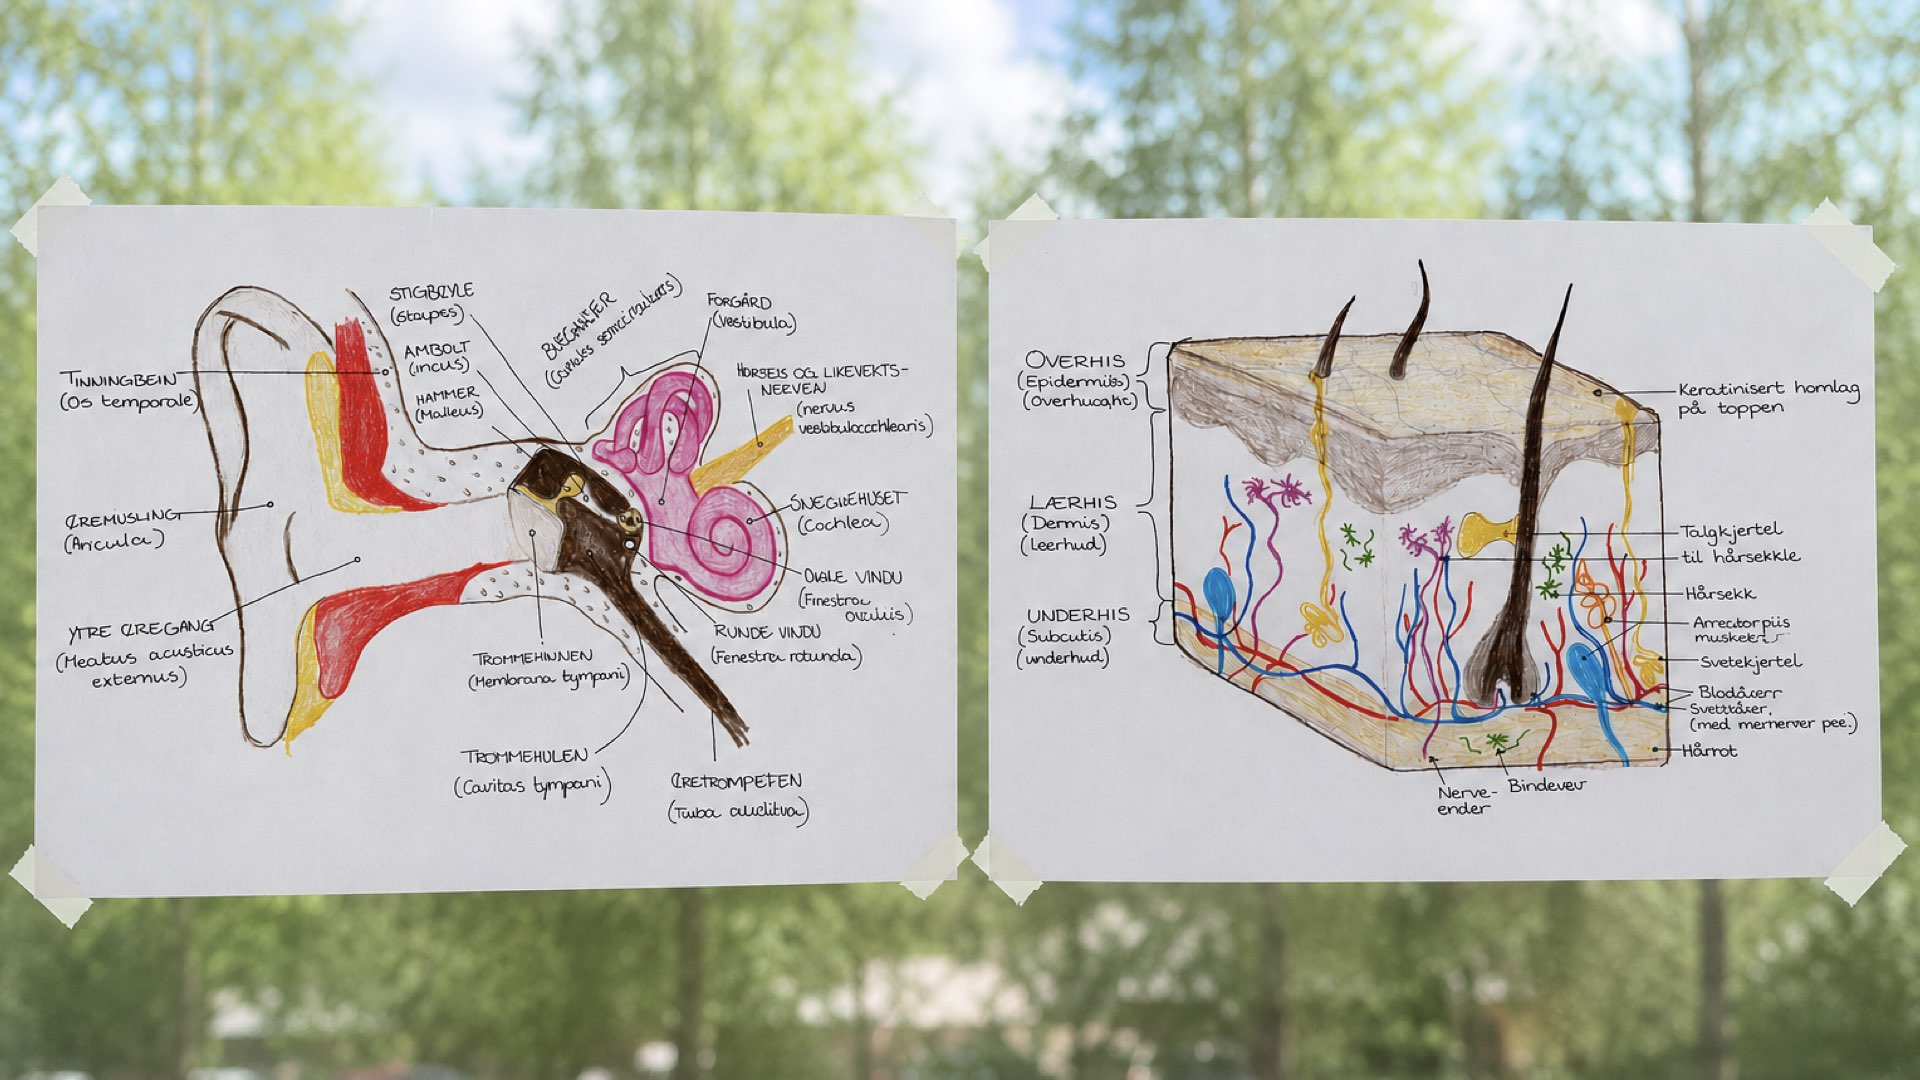 STIGBØYLE
(Stapes)
AMBOLT
(incus)
HAMMER
(Malleus)
FORGÅRD
(Vestibula)
HØRSELS OG LIKEVEKTS-
NERVEN
(nervus
TINNINGBEIN
(Os temporale)
ØREMUSLING
(Aricula)
YTRE ØREGANG
(Meatus acusticus
externus)
(Cochlea)
OVALE VINDU
(Finestra
RUNDE VINDU
(Fenestra rotunda)
TROMMEHINNEN
(Membrana tympani)
TROMMEHULEN
(Cavitas tympani)
ØRETROMPETEN
(Tuba
OVERHIS
(Epidermis)
LÆRHIS
(Dermis)
(Leerhud)
UNDERHIS
(Subcutis)
(underhud)
Keratinisert homlag
på toppen
Talgkjertel
til hårsekkle
Hårsekk
Arrectorpiis
Svetekjertel
(med mernerver pee.)
Hårrot
Nerve-
ender
Bindevev